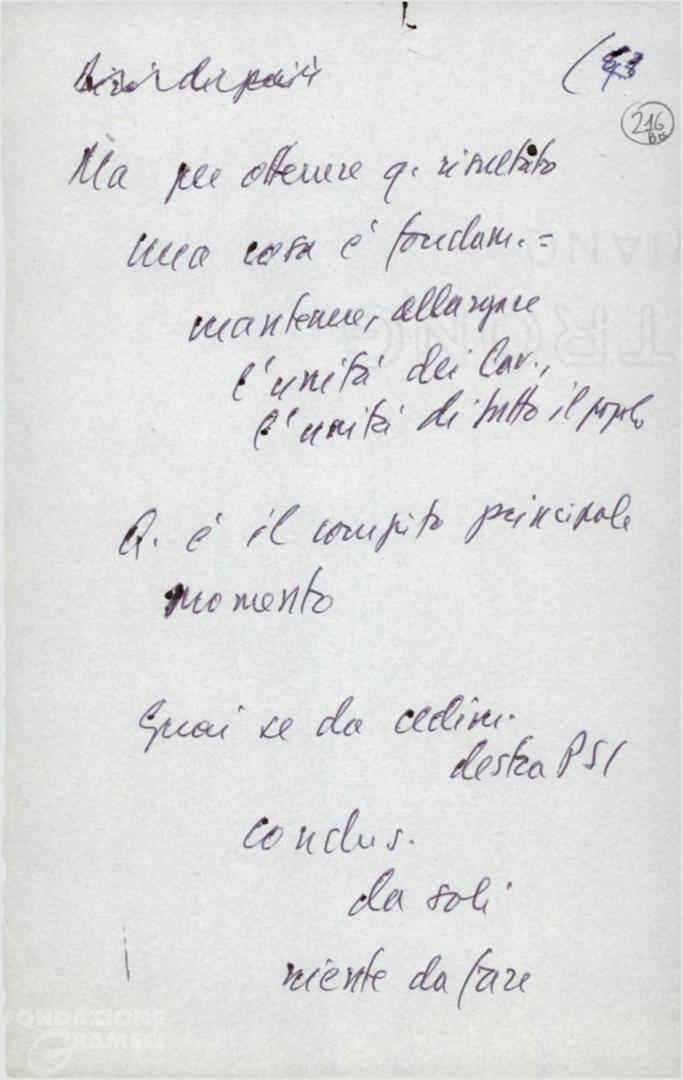 Ma per ottenere q. risultato
una cosa è fondam. =
mantenere, allargare
l'unità dei lav.,
l'unità di tutto il popolo
Q. è il compito principale
momento
Guai se da cedim.
destra PSI
conclus.
da soli
niente da fare
216
Bis
FONDAZIONE
GRAMSCI